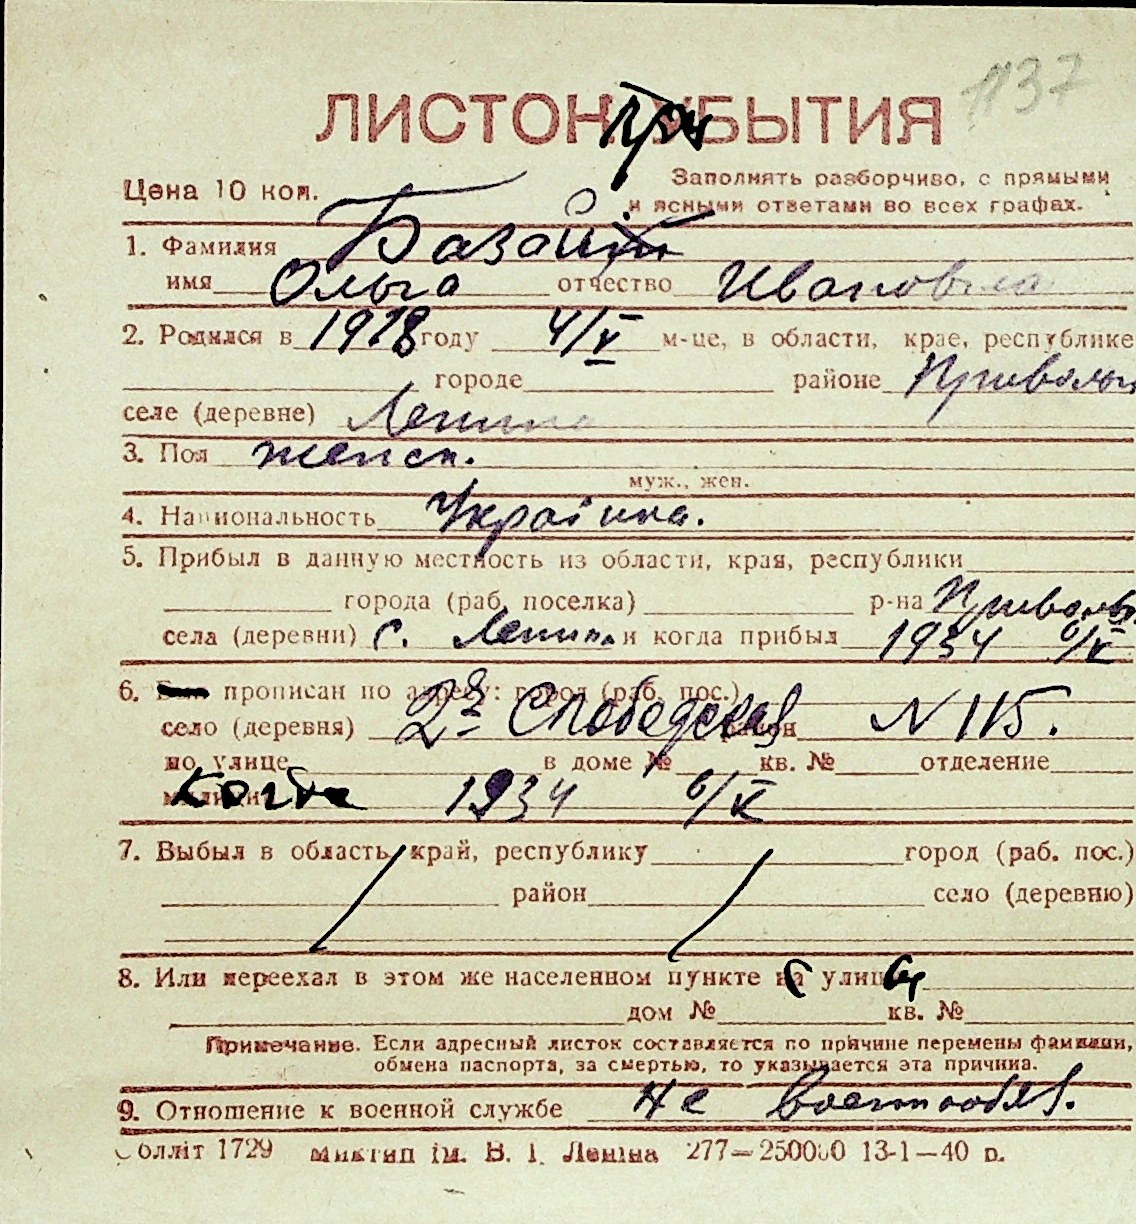 1137
ЛИСТОК УБЫТИЯ
При
Цена 10 коп.
Заполнять разборчиво, с прямыми
и ясными ответами во всех графах.
1. Фамилия
имя Ольга отчество Ивановна
2. Родился в 1918 году 4/V м-це, в области, крае, республике
городе районе Привольн
селе (деревне) Ленина
3. Пол женск.
муж., жен.
4. Национальность Українка.
5. Прибыл в данную местность из области, края, республики
города (раб. поселка) р-на Привольн
села (деревни) с. Ленина и когда прибыл 1934 6/X
6. прописан по адресу: город (раб. пос.)
село (деревня) 2я Слободская район N 115.
по улице в доме № кв. № отделение
милиции Когда 1934 6/X
7. Выбыл в область, край, республику город (раб. пос.)
район село (деревню)
8. Или переехал в этом же населенном пункте с улицы
дом № кв. №
Примечание. Если адресный листок составляется по причине перемены фамилии,
обмена паспорта, за смертью, то указывается эта причина.
9. Отношение к военной службе не военнообяз.
олліт 1729 ім. В. І. Леніна 277—250000 13-1—40 р.